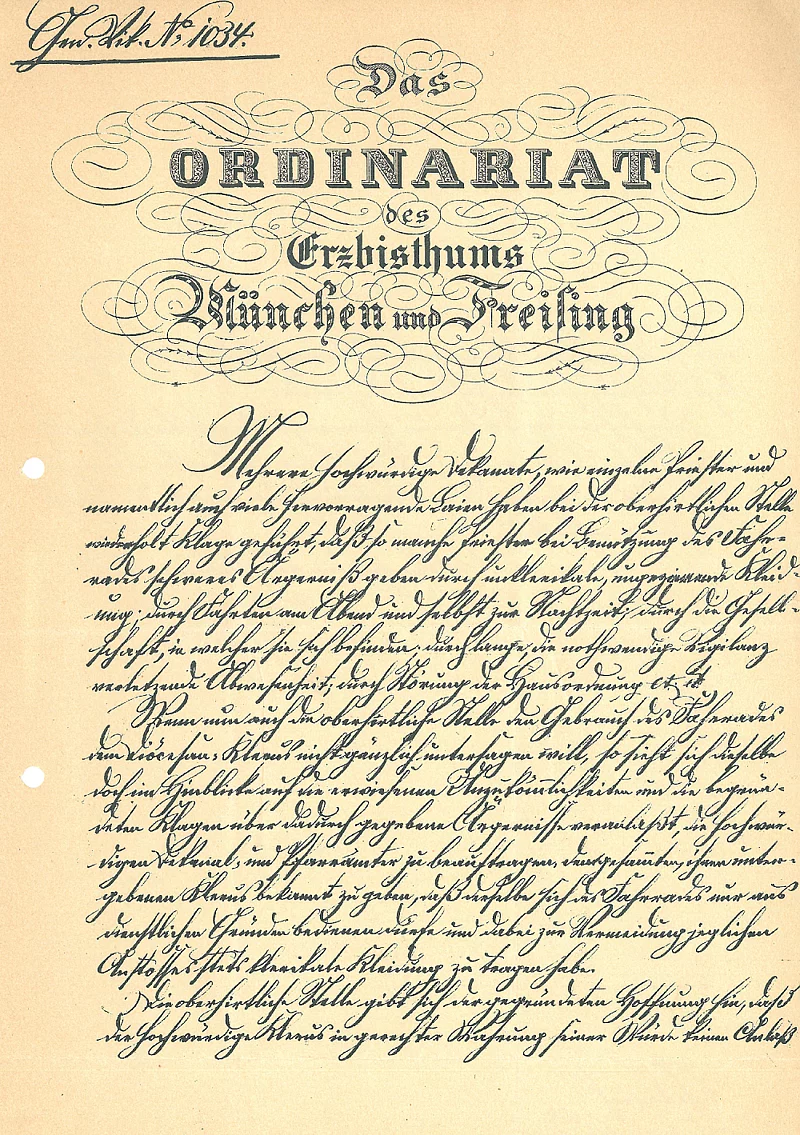 Gen. Vik. No 1034.
Das
ORDINARIAT
des
Erzbisthums
München und Freising
Mehrere hochwürdige Dekanate, wie einzelne Priester und
namentlich auch viele hervorragende Laien haben bei der oberhirtlichen Stelle
wiederholt Klage geführt, daß so manche Priester bei Benützung des Fahr-
rades schweres Ärgerniß geben durch unklerikale, ungeziemende Kleid-
ung; durch Fahrten am Abend und selbst zur Nachtzeit; durch die Gesell-
schaft, in welcher sie sich befinden; durch lange, die nothwendige Vigilanz
verletzende Abwesenheit; durch Störung der Hausordnung etc. etc.
Wenn nun auch die oberhirtliche Stelle den Gebrauch des Fahrrades
dem Diöcesan-Klerus nicht gänzlich untersagen will, so sieht sich dieselbe
doch im Hinblicke auf die erwiesenen Unzukömlichkeiten und die begrün-
deten Klagen über dadurch gegebene Ärgernisse veranlaßt, die hochwür-
digen Dekanal- und Pfarrämter zu beauftragen, dem gesammten, ihnen unter-
gebenen Klerus bekannt zu geben, daß derselbe sich des Fahrrades nur aus
dienstlichen Gründen bedienen dürfe und dabei zur Vermeidung jeglichen
Anstosses stets klerikale Kleidung zu tragen habe.
Die oberhirtliche Stelle gibt sich der gegründeten Hoffnung hin, daß
der hochwürdige Klerus in gerechter Wahrung seiner Würde keinen Anlaß